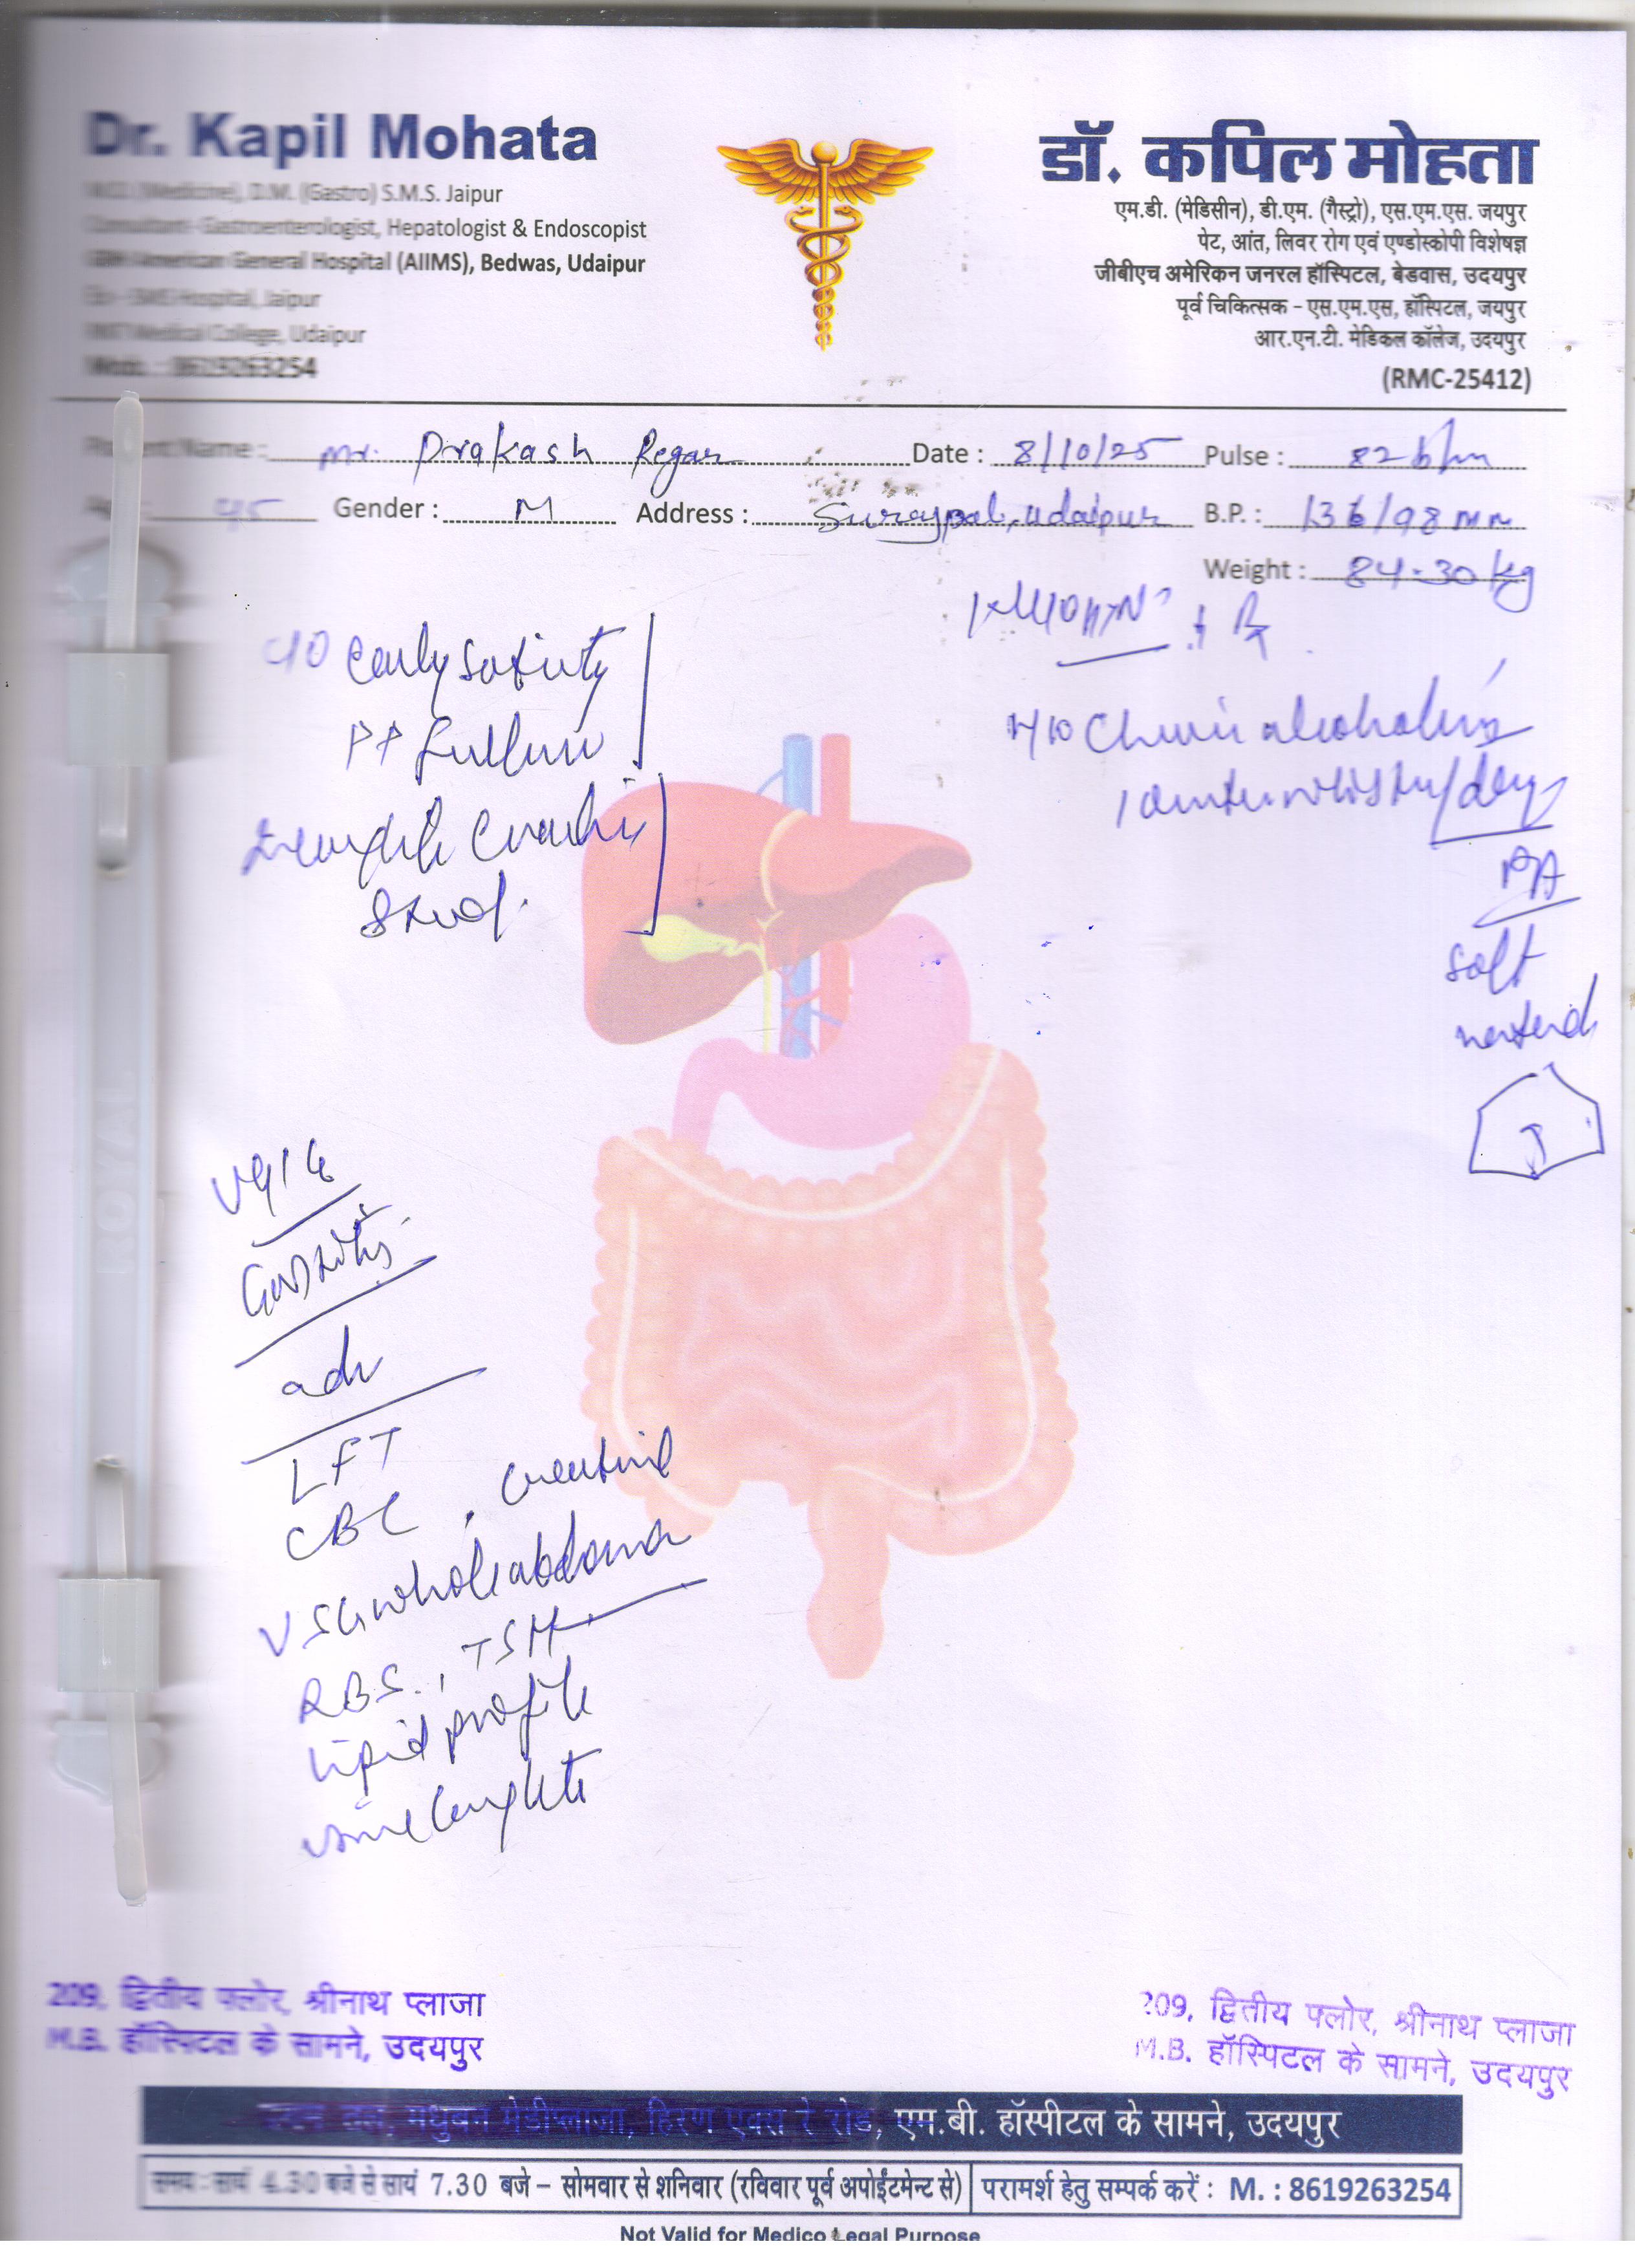 Dr. Kapil Mohata
M.D. (Medicine), D.M. (Gastro) S.M.S. Jaipur
Consultant- Gastroenterologist, Hepatologist & Endoscopist
GBH American General Hospital (AIIMS), Bedwas, Udaipur
Ex - SMS Hospital, Jaipur
RNT Medical College, Udaipur
Mob. : 8619263254
डॉ. कपिल मोहता
एम.डी. (मेडिसीन), डी.एम. (गैस्ट्रो), एस.एम.एस. जयपुर
पेट, आंत, लिवर रोग एवं एण्डोस्कोपी विशेषज्ञ
जीबीएच अमेरिकन जनरल हॉस्पिटल, बेडवास, उदयपुर
पूर्व चिकित्सक - एस.एम.एस, हॉस्पिटल, जयपुर
आर.एन.टी. मेडिकल कॉलेज, उदयपुर
(RMC-25412)
Patient Name : Mr. Prakash Regar Date : 8/10/25 Pulse : 82 b/m
45 Gender : M Address : Udaipur B.P. : 136/98 mm
Weight : 84.30 kg
Rx
c/o early satiety
PP
stool
H/o Chronic alcoholism
/day
P/A
soft
UGIE
Gastritis
adv
LFT
CBC, creatinine
USG whole abdomen
RBS, TSH
lipid profile
urine complete
ROYAL
209, द्वितीय फ्लोर, श्रीनाथ प्लाजा
M.B. हॉस्पिटल के सामने, उदयपुर
209, द्वितीय फ्लोर, श्रीनाथ प्लाजा
M.B. हॉस्पिटल के सामने, उदयपुर
मधुबन मेडीप्लाजा, हिरण एक्स रे रोड, एम.बी. हॉस्पीटल के सामने, उदयपुर
समय : सायं 4.30 बजे से सायं 7.30 बजे – सोमवार से शनिवार (रविवार पूर्व अपोईंटमेन्ट से) परामर्श हेतु सम्पर्क करें : M. : 8619263254
Not Valid for Medico Legal Purpose